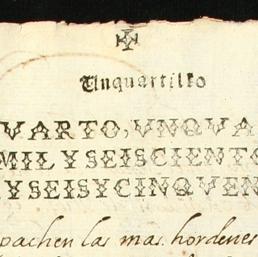 Unquartillo
VARTO, VNQVA
MILYSEISCIENTO
YSEISYCINQVEN
pachen las mas. hordenes